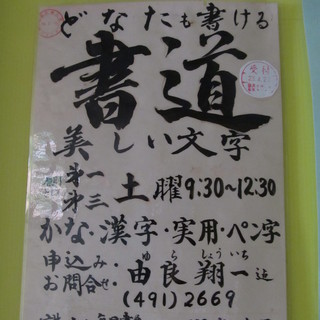 どなたも書ける
書道
美しい文字
第一
第三 土曜 9:30~12:30
かな・漢字・実用・ペン字
申込み・
お問合せ・ 由良翔一迄
ゆら しょういち
(491)2669